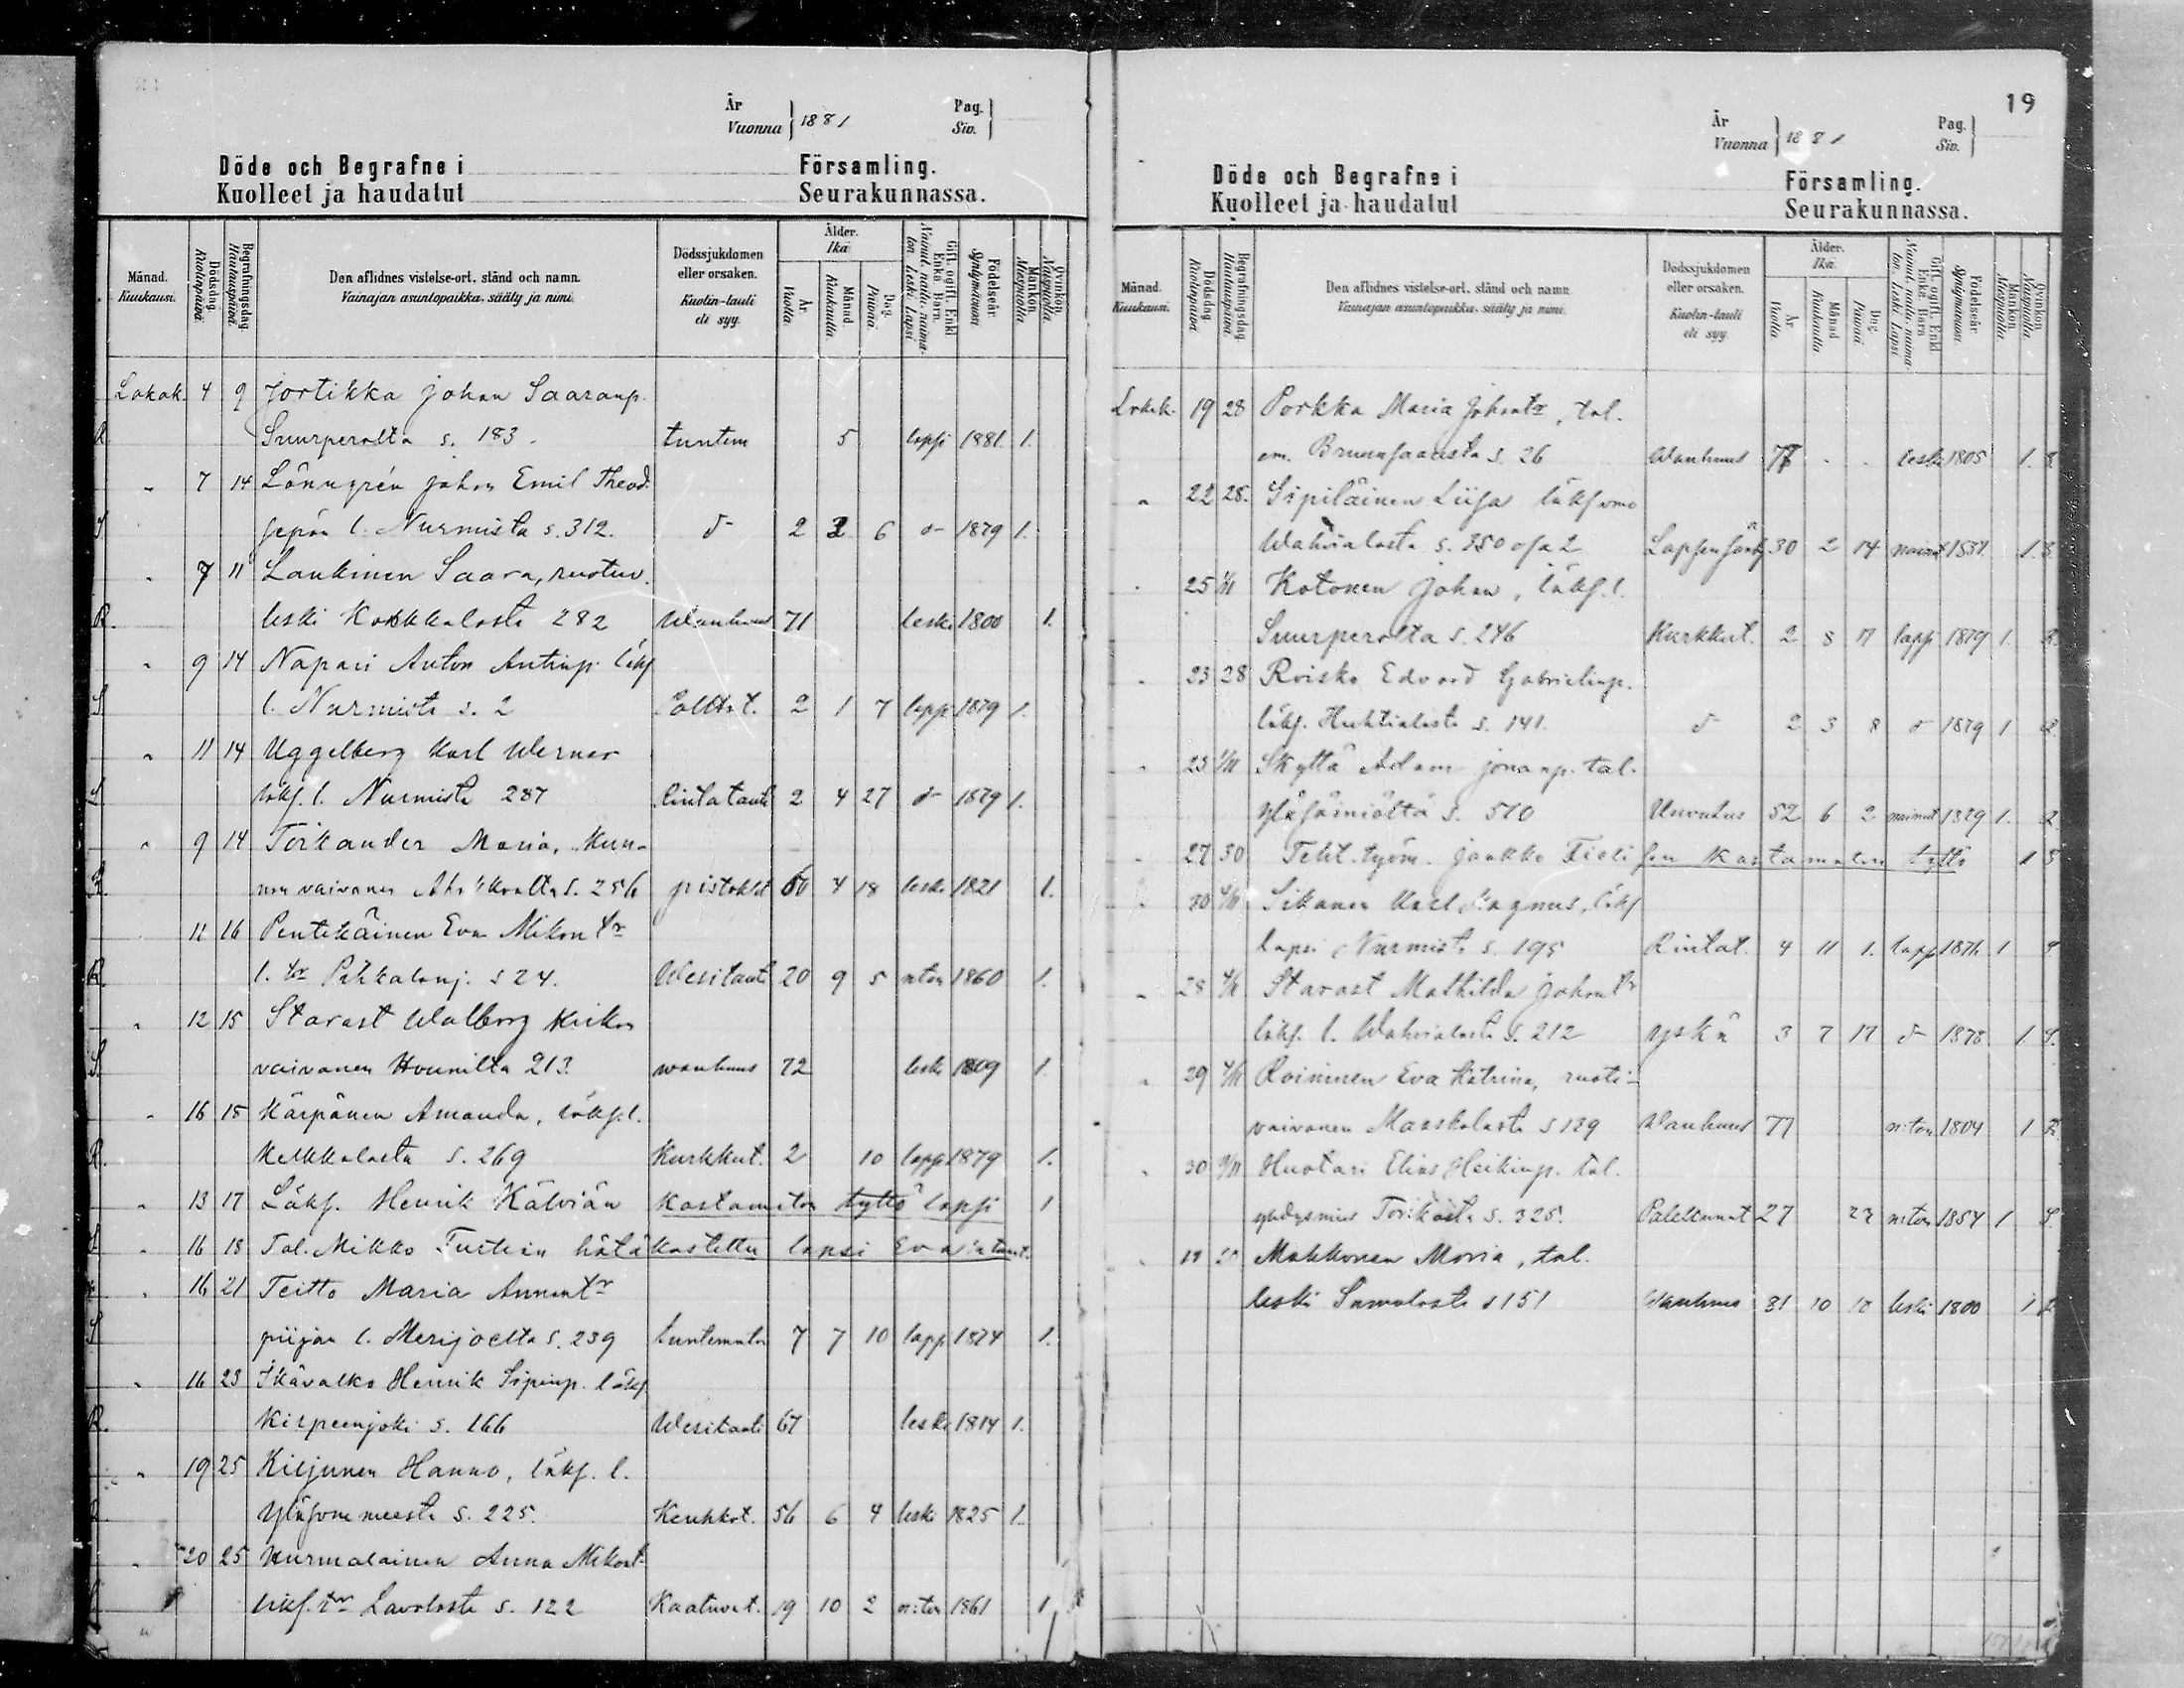 År
Vuonna } 1881
Pag.
Siv.
Döde och Begrafne i Församling.
Kuolleet ja haudatut Seurakunnassa.
Månad.
Kuukausi.
Dödsdag.
Kuolinpäivä.
Begrafningsdag.
Hautauspäivä.
Den aflidnes vistelse-ort, stånd och namn.
Vainajan asuntopaikka, sääty ja nimi.
Dödssjukdomen
eller orsaken.
Kuolin-tauti
eli syy.
Ålder.
Ikä.
År.
Vuotta
Månad.
Kuukautta.
Dag.
Päivää.
Gift, ogift, Enkl.
Enka, Barn.
Nainut, naitu, naima-
ton, Leski, Lapsi
Födelseår.
Syntymävuosi.
Mankön.
Miespuolia
Qvinkön.
Naispuolia
Lokak. 4 9 Jortikka Johan Saaranp.
R Suurperolta s. 183. tuntem 5 lapsi 1881. 1.
" 7 14 Lönngrén Johan Emil Theod.
S sepän l. Nurmista s. 312. d- 2 2 6 d- 1879 1.
" 7 11 Laukinen Saara, ruotuv.
R. leski Kokkalasta 282 Wanhuus 71 leski 1800 1.
" 9 14 Napari Anton Antinp. läks
S l. Nurmista s. 2 2 1 7 laps 1879 1.
" 11 14 Uggelberg Karl Werner
S läks. l. Nurmista 287 rintatauti 2 4 27 d- 1879 1.
" 9 14 Törkander Maria, kun-
R nan vaivanen s. 256 pistokset 60 4 18 leski 1821 1.
11 16 Pentikäinen Eva Mikontr
R l. tr s 24. Wesitauti 20 9 5 nton 1860 1.
" 12 15 Starast Walborg
S vaivanen Hounilta 213. wanhuus 72 leski 1809 1
" 16 18 Kärpänen Amanda, läks. l.
R. Kelkkalasta s. 269 Kurkkut. 2 10 laps 1879 1.
" 13 17 Läks. Henrik Kälviän kastamaton tyttö lapsi 1
S " 16 18 Tal. Mikko hätäkastettu lapsi Eva
" 16 21 Teitto Maria Annantr
S piijan l. Merijoelta s. 239 tuntematon 7 7 10 laps 1874 1.
" 16 23 Ikävalko Henrik Sipinp. läks
R. Kirpeenjoki s. 166 Wesitauti 67 leski 1814 1.
" 19 25 Kiljunen Hanno, läks. l.
R Yläsommeesta s. 225. Keuhkot. 56 6 4 leski 1825 1.
" 20 25 Nurmalainen Anna Mikont.
läks. tr Lavolasta s. 122 Kaatuvat. 19 10 2 n:ton 1861 1
19
År
Vuonna } 1881
Pag.
Siv.
Döde och Begrafne i Församling.
Kuolleet ja haudatut Seurakunnassa.
Månad.
Kuukausi.
Dödsdag.
Kuolinpäivä.
Begrafningsdag.
Hautauspäivä.
Den aflidnes vistelse-ort, stånd och namn.
Vainajan asuntopaikka, sääty ja nimi.
Dödssjukdomen
eller orsaken.
Kuolin-tauti
eli syy.
Ålder.
Ikä.
År.
Vuotta
Månad.
Kuukautta
Dag.
Päivää.
Gift, ogift, Enkl.
Enka, Barn.
Nainut, naitu, naima-
ton, Leski, Lapsi
Födelseår.
Syntymävuosi.
Mankön.
Miespuolia
Qvinkön.
Naispuolia
Lokak. 19 28 Porkka Maria Johantr, tal.
em. s. 26 Wanhuus 77 leski 1805 1. R
" 22 28. Sipiläinen Liisa läks
Wahvialasta s. 350 30 2 14 nainut 1. S
" 25 1/11 Kotonen Johan, läks. l.
Suurperolta s. 246 Kurkkut. 2 8 17 laps 1879 1. R
" 23 28 Roisko Edvard Gabrielinp.
läks. Huhtialasta s. 141. d- 2 3 8 d- 1879 1 R
" 23 1/11 Skyttä Adam Jonanp. tal.
Yläsäiniöltä s. 510 52 6 2 nainut 1829 1. R
" 27 30 Teht. työm. Jaakko kastamaton tyttö 1 S
" 30 4/11 Sikanen Karl Magnus, läks
lapsi Nurmista s. 195 Rintat. 4 11 1. laps 1876 1 S
" 28 4/11 Starast Mathilda Johantr
läks. l. Wahvialasta s. 212 yskä 3 7 17 d- 1878 1 S.
" 29 4/11 Roininen Eva Katrina, ruoti-
vaivanen Maaskolasta s 129 Wanhuus 77 n:ton 1804 1 R
" 30 9/11 Huotari Elias Heikinp. tal.
s. 325. 27 23 n:ton 1854 1 S.
" Makkonen Maria, tal.
leski Samolasta s 151 Wanhuus 81 10 leski 1800 1 R